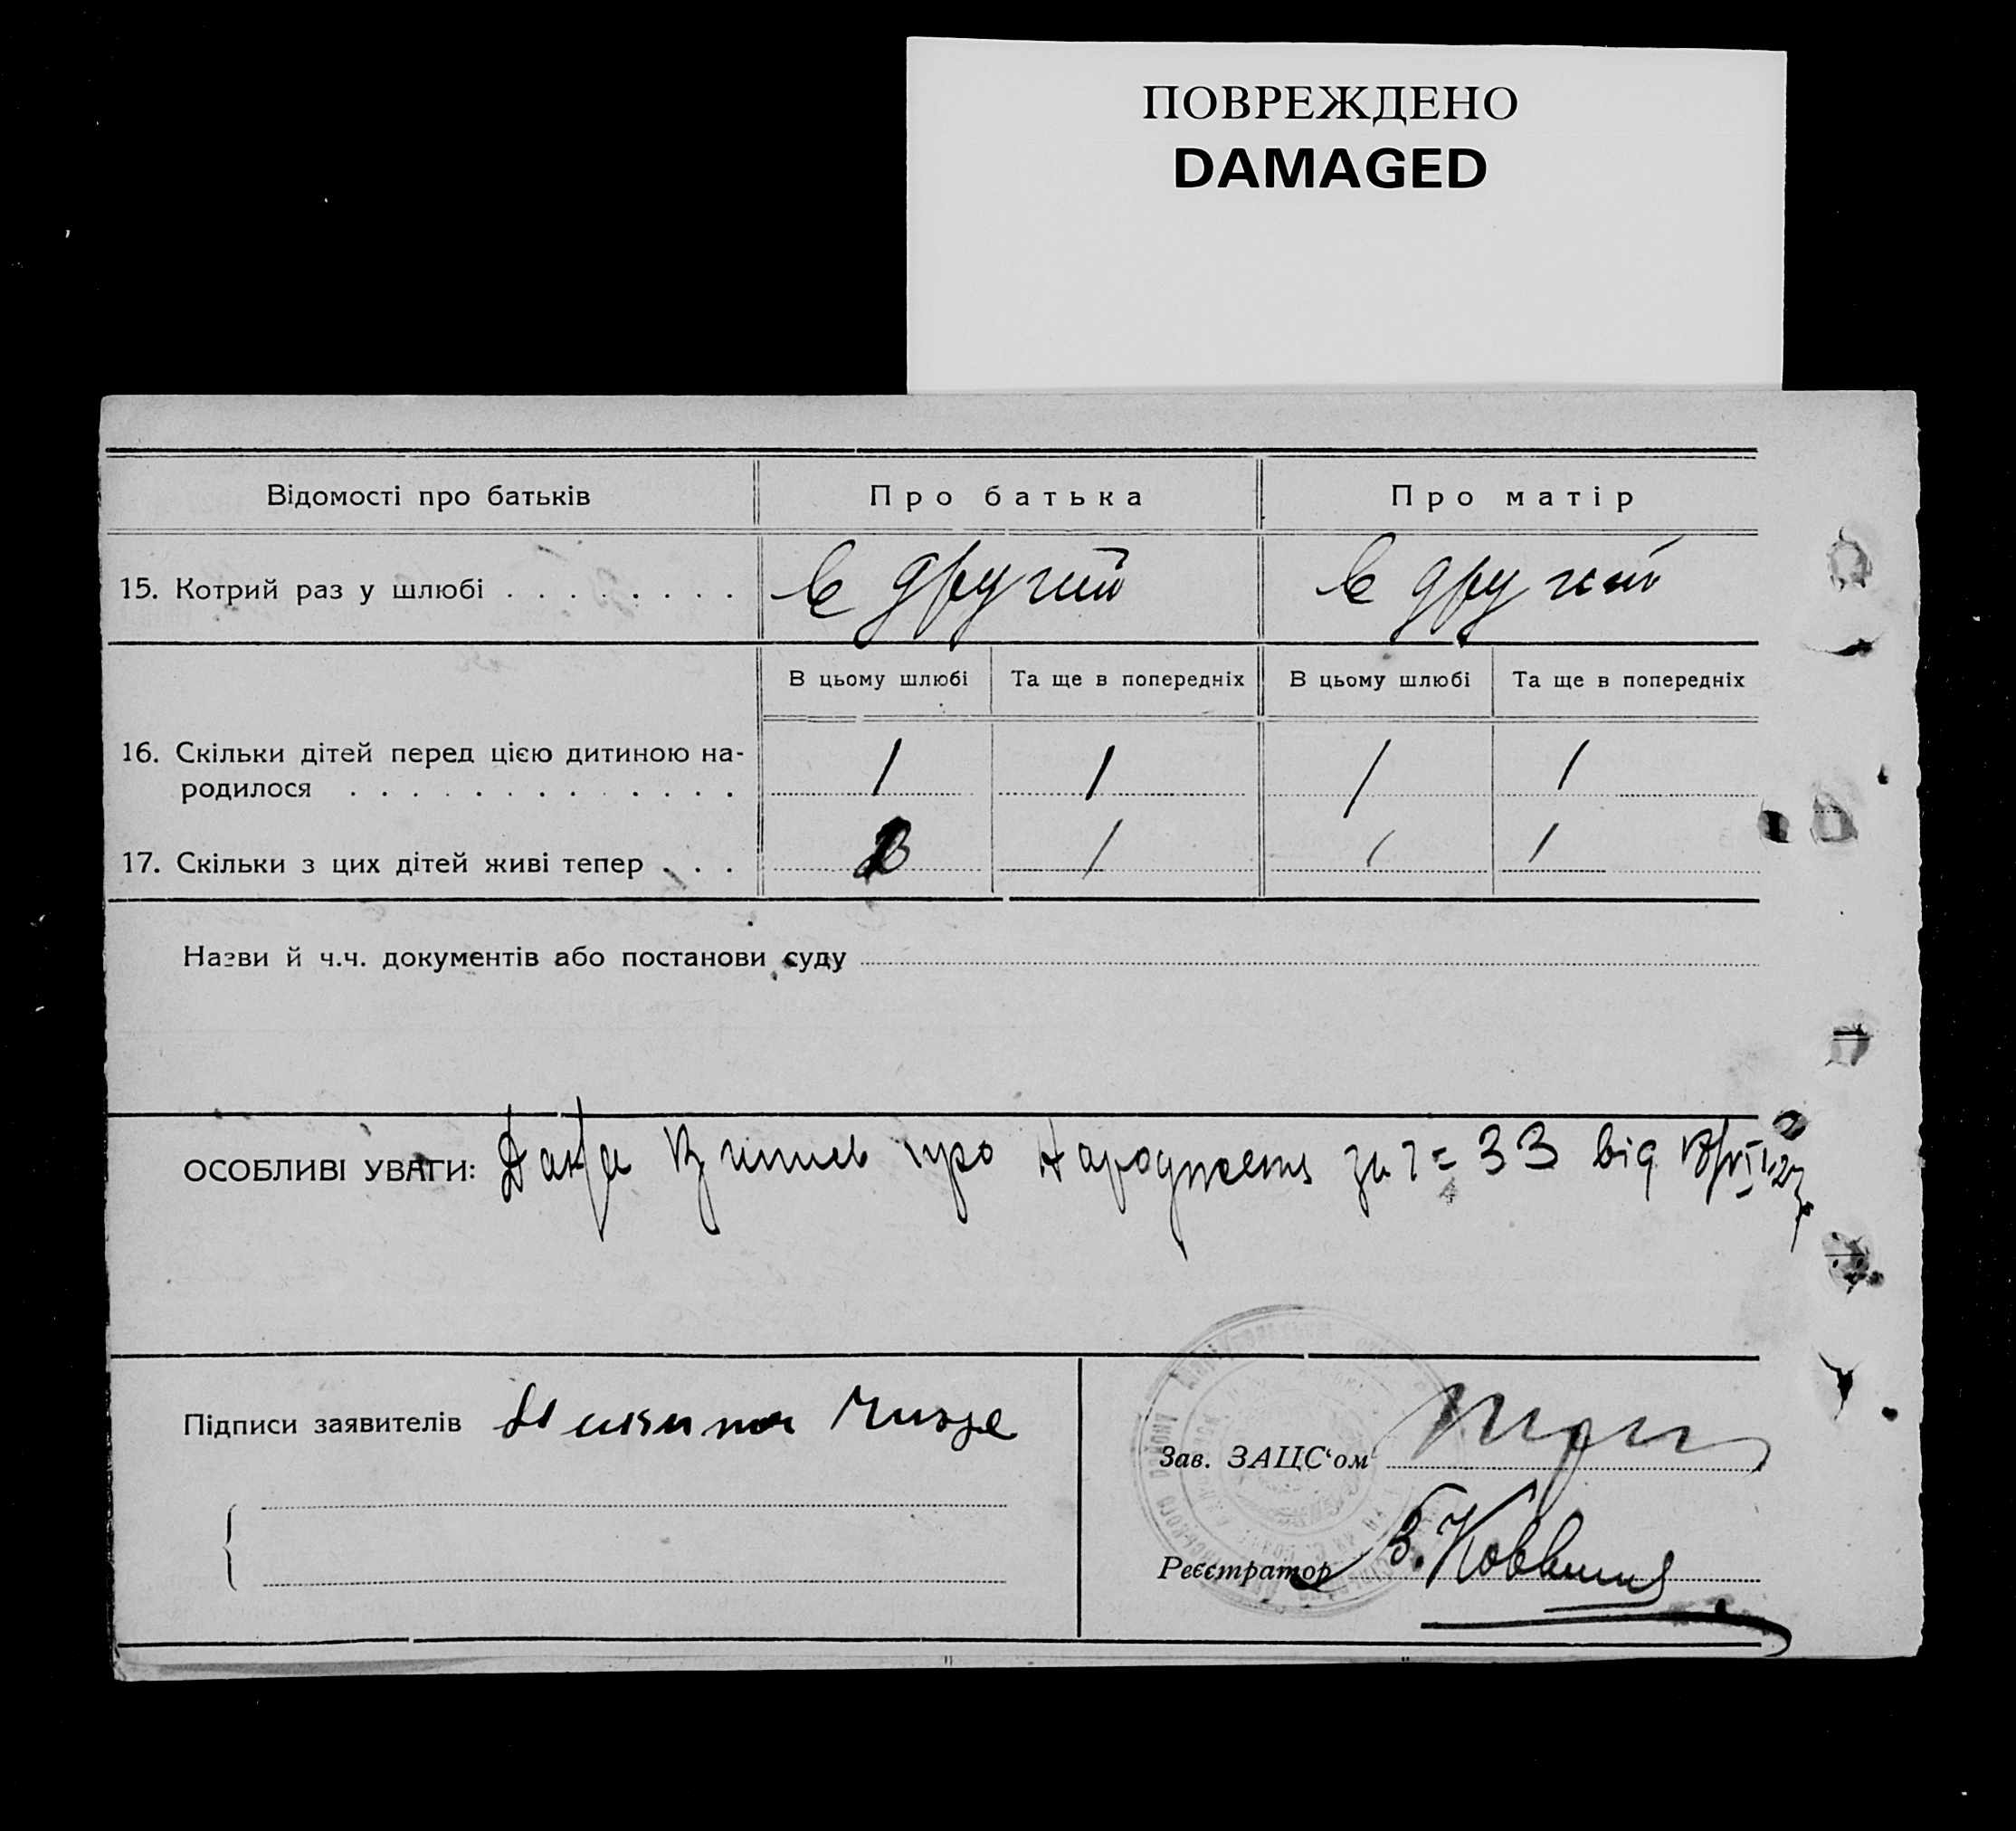 ПОВРЕЖДЕНО
DAMAGED
Відомості про батьків
Про батька
Про матір
15. Котрий раз у шлюбі
в другий
в другий
В цьому шлюбі
Та ще в попередніх
В цьому шлюбі
Та ще в попередніх
16. Скільки дітей перед цією дитиною на-
родилося
1
1
1
1
17. Скільки з цих дітей живі тепер
1
1
1
Назви й ч.ч. документів або постанови суду
ОСОБЛИВІ УВАГИ: Дана про за 33 від
Підписи заявителів
Зав. ЗАЦС'ом
Реєстратор В.